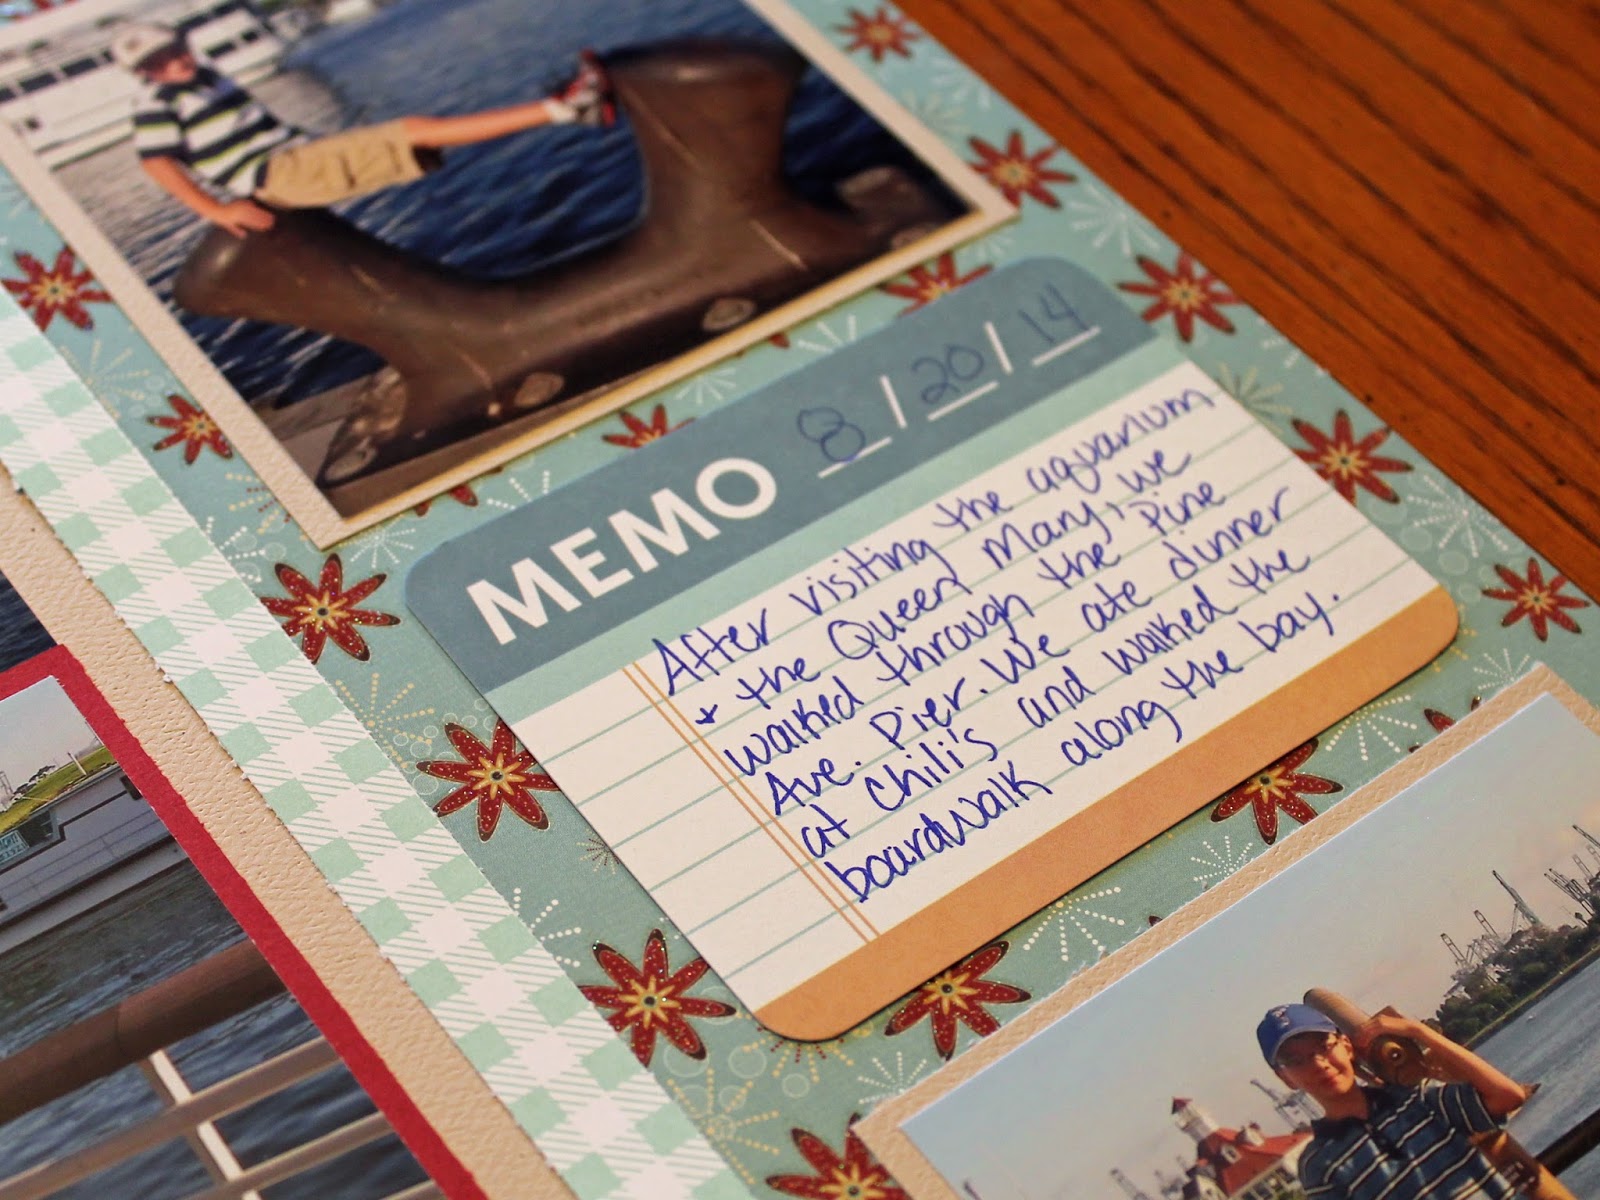 MEMO 8/20/14
After visiting the aquarium
+ the Queen Mary, we
walked through the Pine
Ave. Pier. We ate dinner
at Chili's and walked the
boardwalk along the bay.